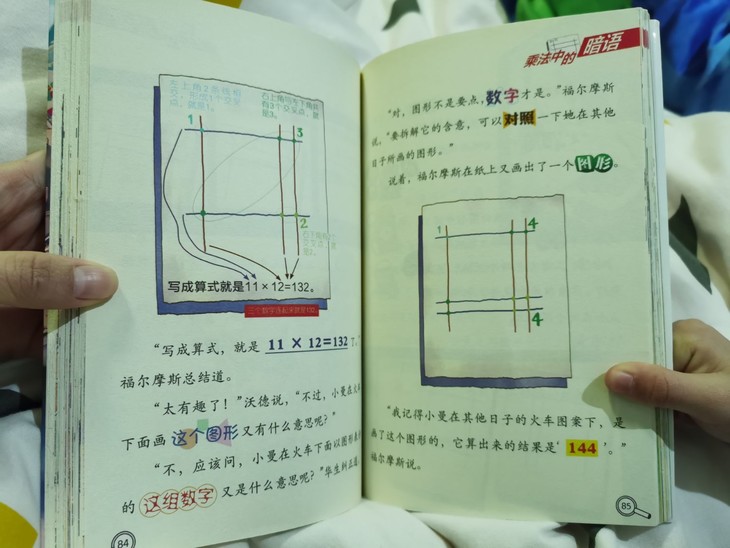 右上角与左下角共
有3个交叉点,就
是3。
1
3
2
写成算式就是11×12=132。
三个数字连起来就是132
“写成算式,就是 11 × 12=132 了。”
福尔摩斯总结道。
“太有趣了!”沃德说,“不过,小曼在火车
下面画这个图形又有什么意思呢?”
“不,应该问,小曼在火车下面以图形表
的这组数字又是什么意思呢?”华生纠正道。
84
乘法中的暗语
“对,图形不是要点,数字才是。”福尔摩斯
说,“要拆解它的含意,可以对照一下她在其他
日子所画的图形。”
说着,福尔摩斯在纸上又画出了一个图形。
1
4
4
“我记得小曼在其他日子的火车图案下,是
画了这个图形的,它算出来的结果是‘144’。”
福尔摩斯说。
85